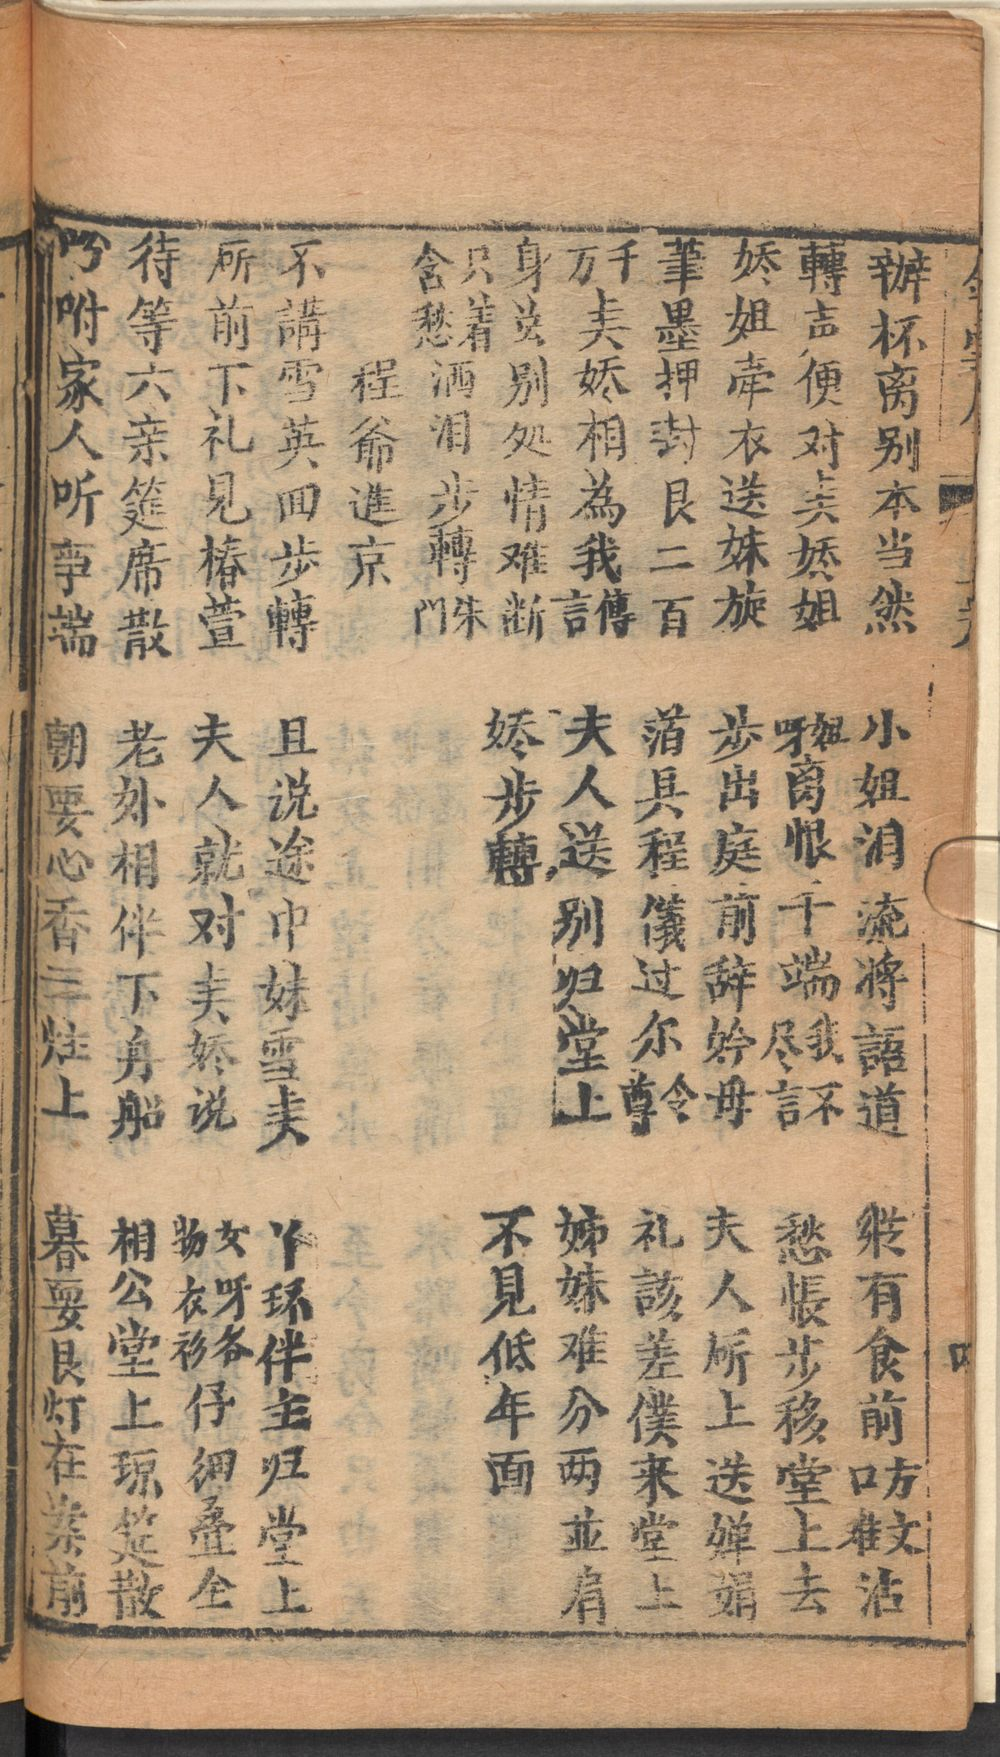 辦杯离别本当然　小姐泪流將語道　縱有食前方丈口难沾
轉声便对美娇姐　姐呀离恨千端我不尽言　愁悵步移堂上去
娇姐牵衣送妹旋　步出庭前辞妗母　夫人所上送婵娟
筆墨押封艮二百　萡具程儀过尔令尊　礼該差僕来堂上
千万美娇相為我傳言　夫人送别归堂上　姊妹难分两並肩
身虽别処情难断　娇步轉　不見低年面
只着含愁洒泪步轉朱門
程爺進京
不講雪英囬步轉　且说途中妹雪美　丫环伴主归堂上
所前下礼見椿萱　夫人就对美娇说　女呀各物衣衫仔细叠全
待等六亲筵席散　老外相伴下舟船　相公堂上琼筵散
吩咐家人听事端　朝要心香三炷上　暮要艮灯在案前